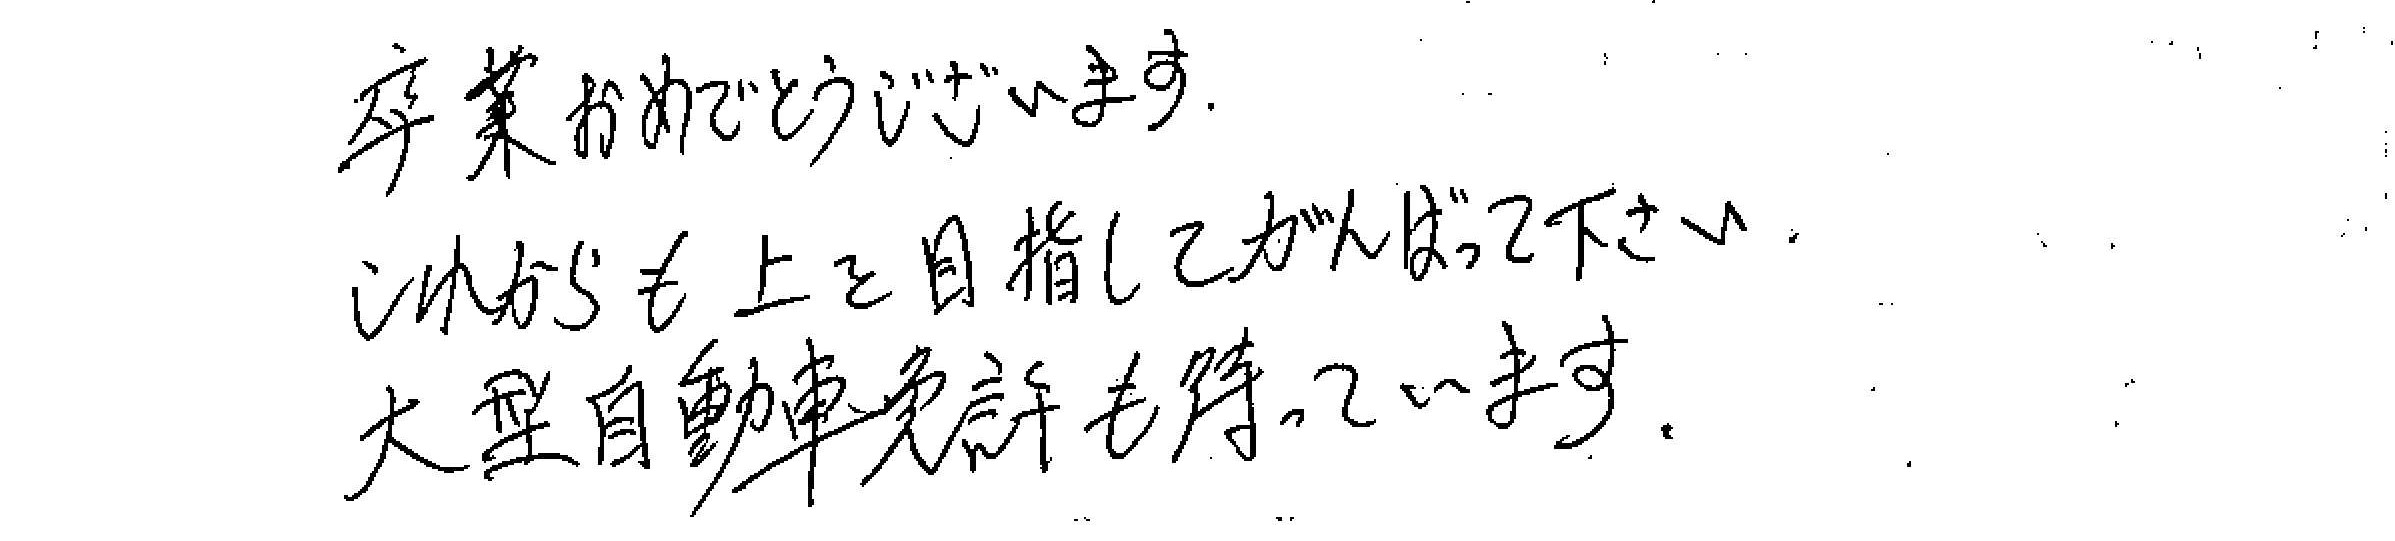 卒業おめでとうございます.
これからも上を目指してがんばって下さい.
大型自動車免許も待っています.